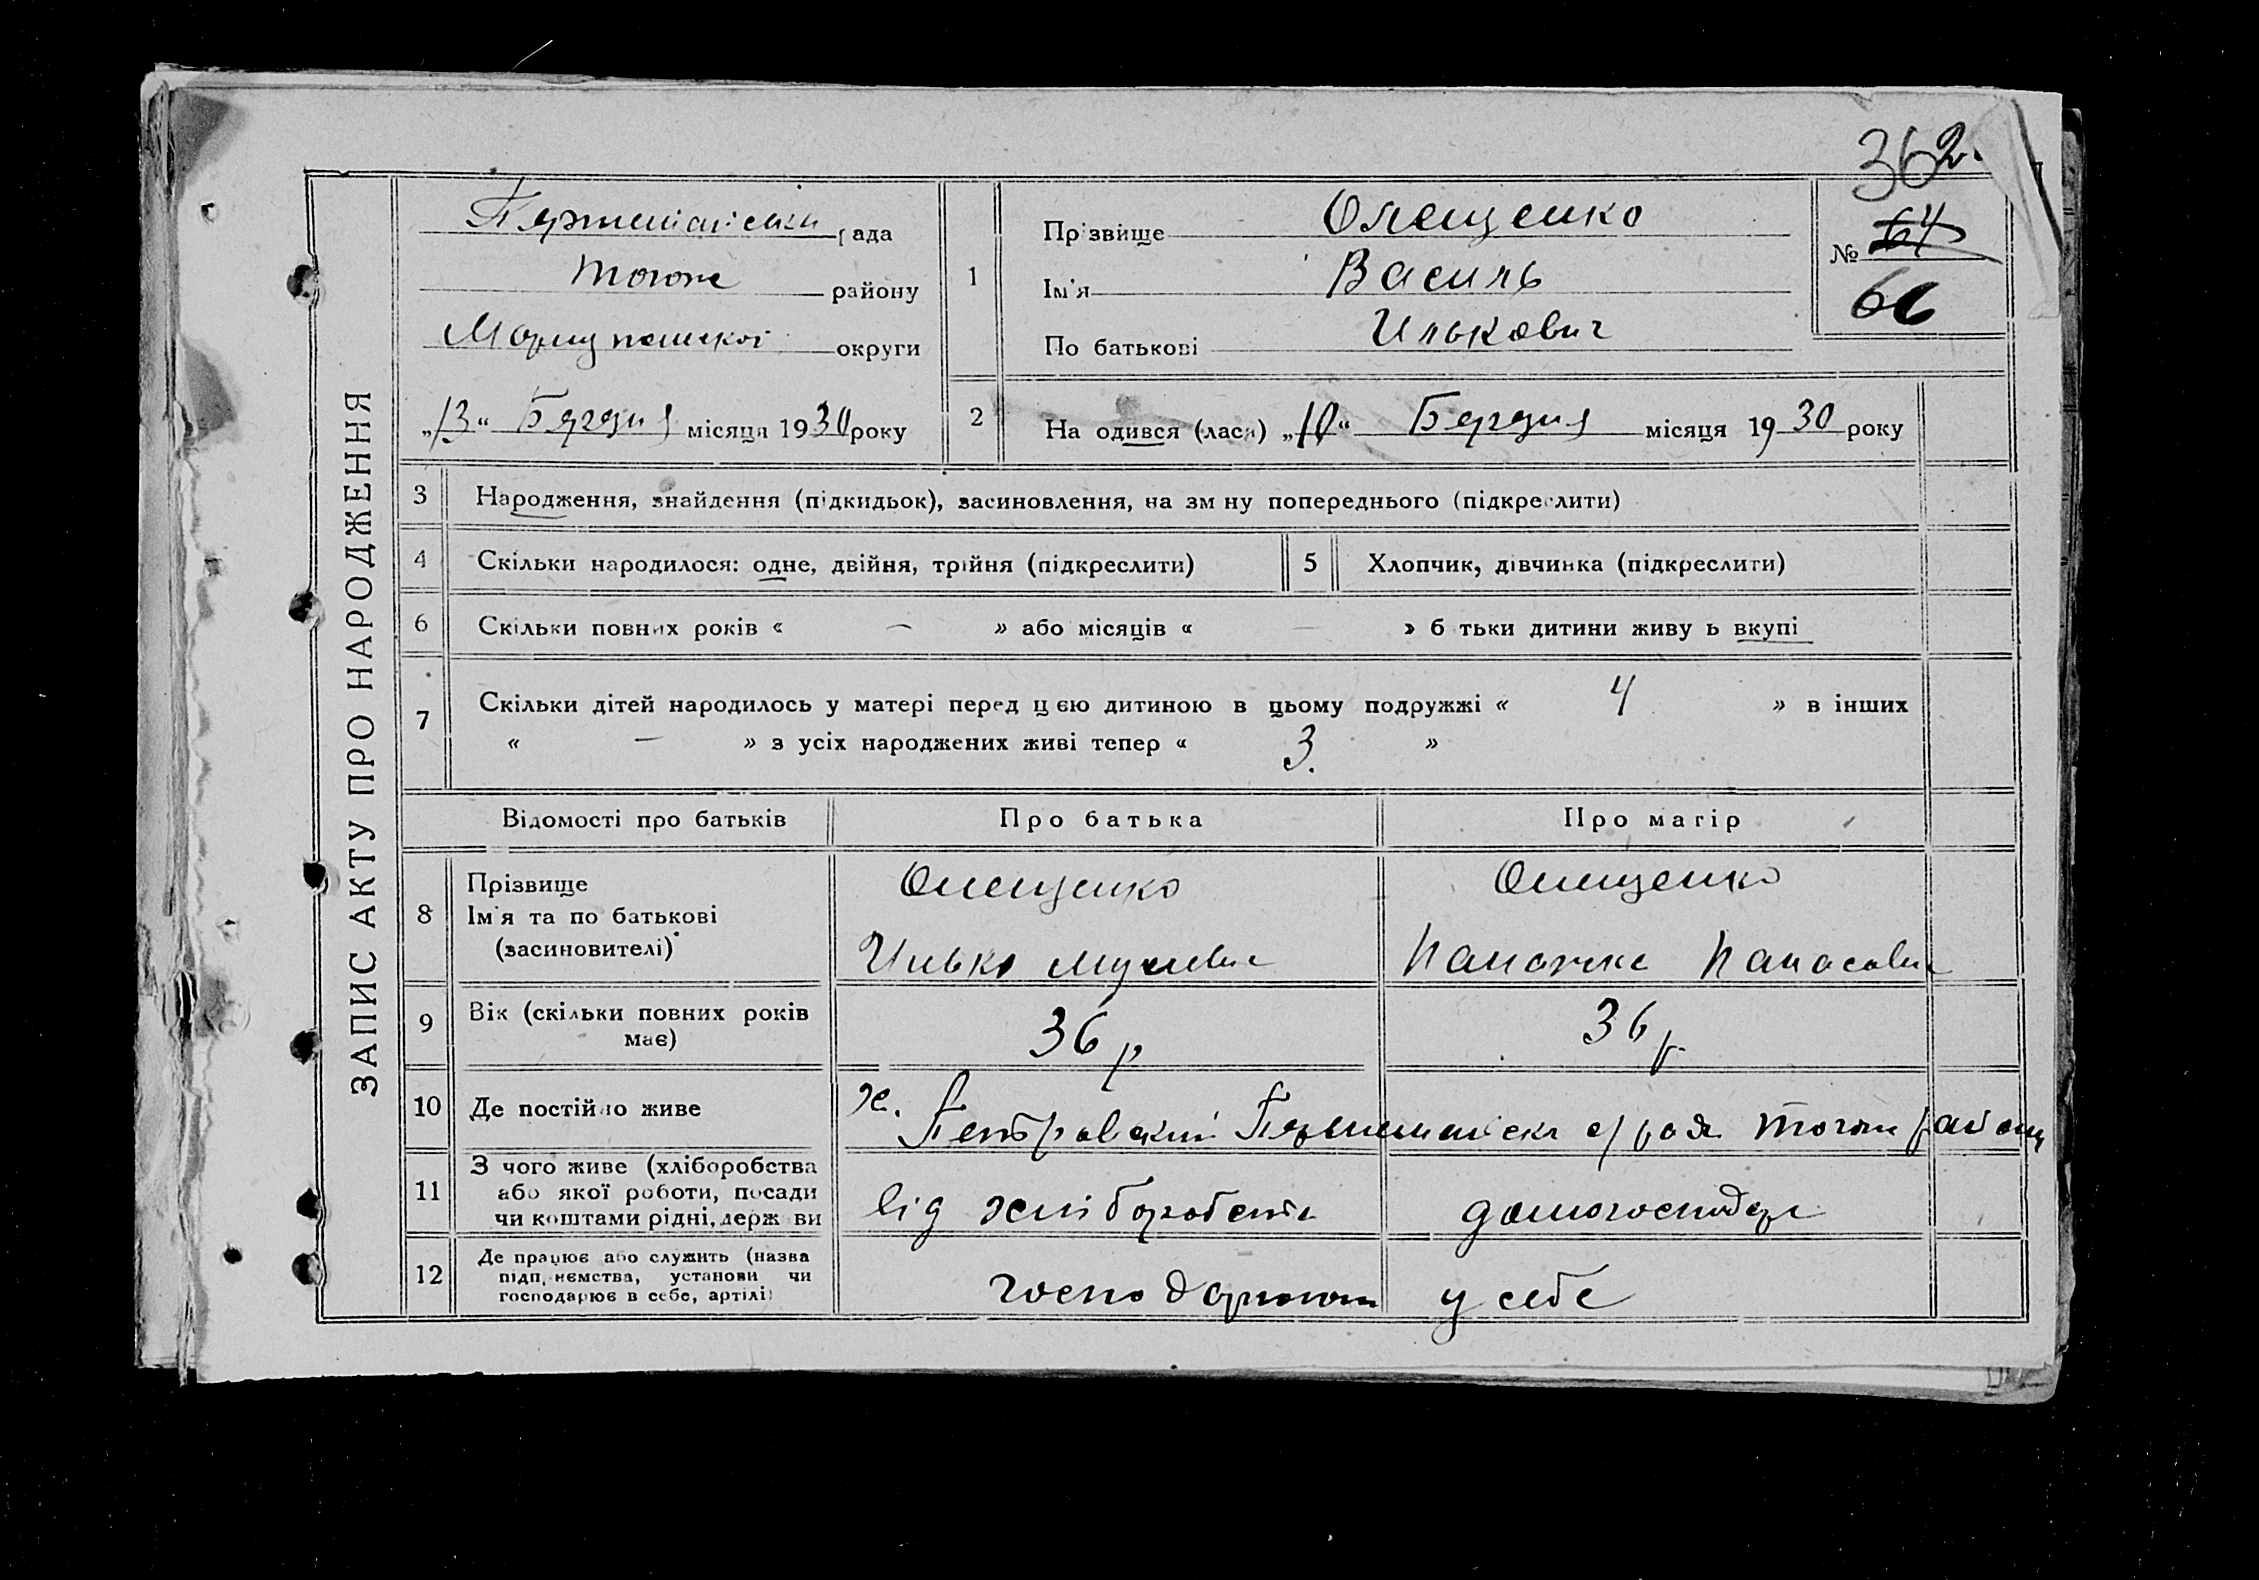 362.
ЗАПИС АКТУ ПРО НАРОДЖЕННЯ
рада
району
Маріупольської округи
„13“ Березня місяця 1930 року
1
Прізвище Олещенко
Ім'я Василь
По батькові Илькович
№ 64
66
2 На одився (лася) „10“ Березня місяця 1930 року
3 Народження, знайдення (підкидьок), засиновлення, на зм ну попереднього (підкреслити)
4 Скільки народилося: одне, двійня, трійня (підкреслити)
5 Хлопчик, дівчинка (підкреслити)
6 Скільки повних років « — » або місяців « — » б тьки дитини живу ь вкупі
7 Скільки дітей народилось у матері перед цею дитиною в цьому подружжі « 4 » в інших
« — » з усіх народжених живі тепер « 3. »
Відомості про батьків Про батька Про матір
8 Прізвище Олещенко Олещенко
Ім'я та по батькові
(засиновителі) Илько
9 Вік (скільки повних років має) 36 р 36 р
10 Де постійно живе х. Петровский
11 З чого живе (хліборобства
або якої роботи, посади
чи коштами рідні, держ ви від хліборобства
12 Де працює або служить (назва
підп, иємства, установи чи
господарює в себе, артілі) у себе